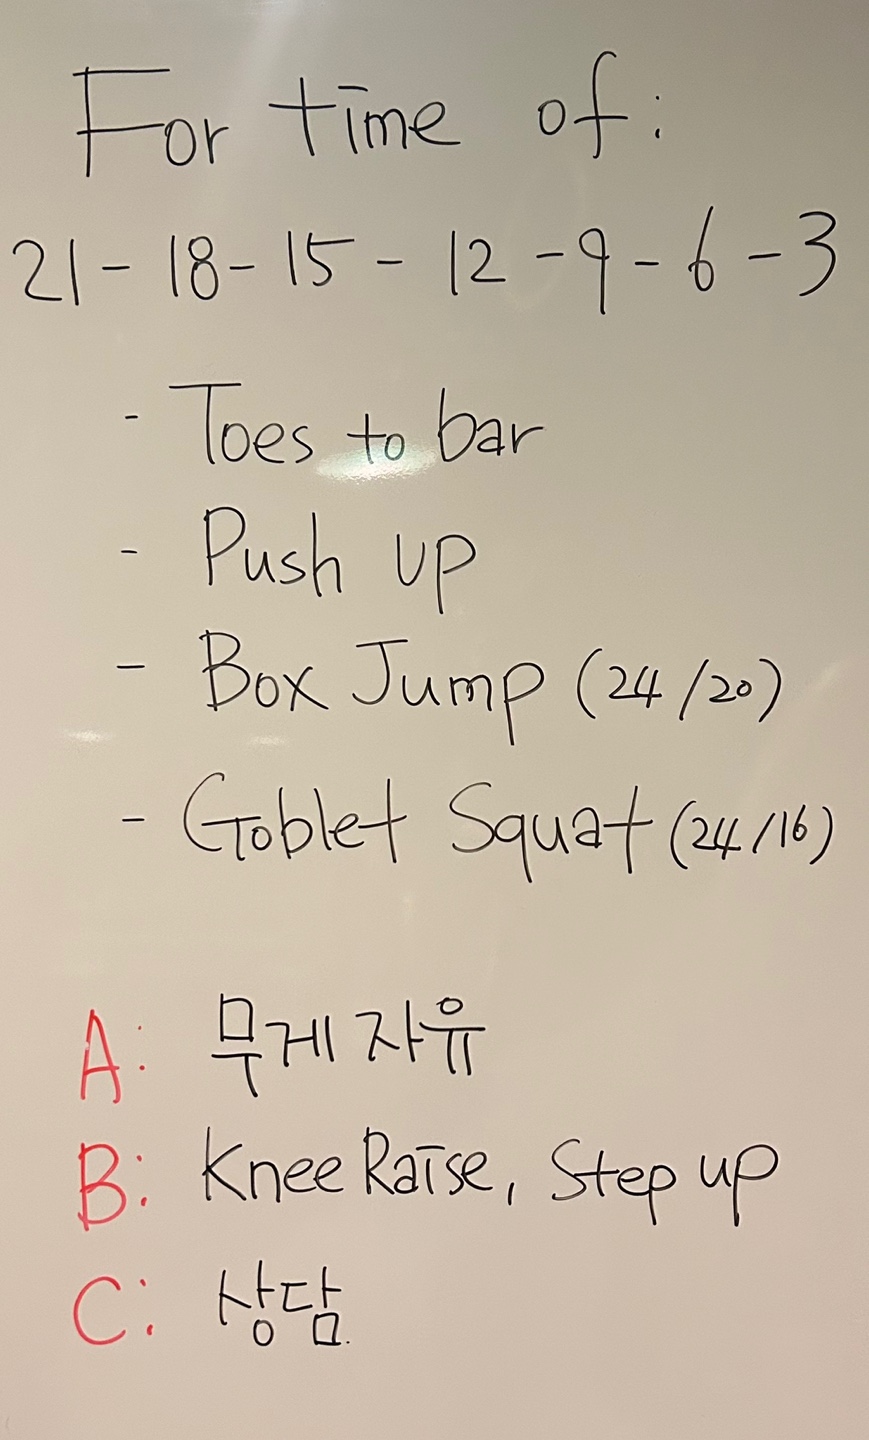 For time of:
21-18-15-12-9-6-3
- Toes to bar
- Push up
- Box Jump (24/20)
- Goblet Squat (24/16)
A: 무게 자유
B: Knee Raise, Step up
C: 상담.